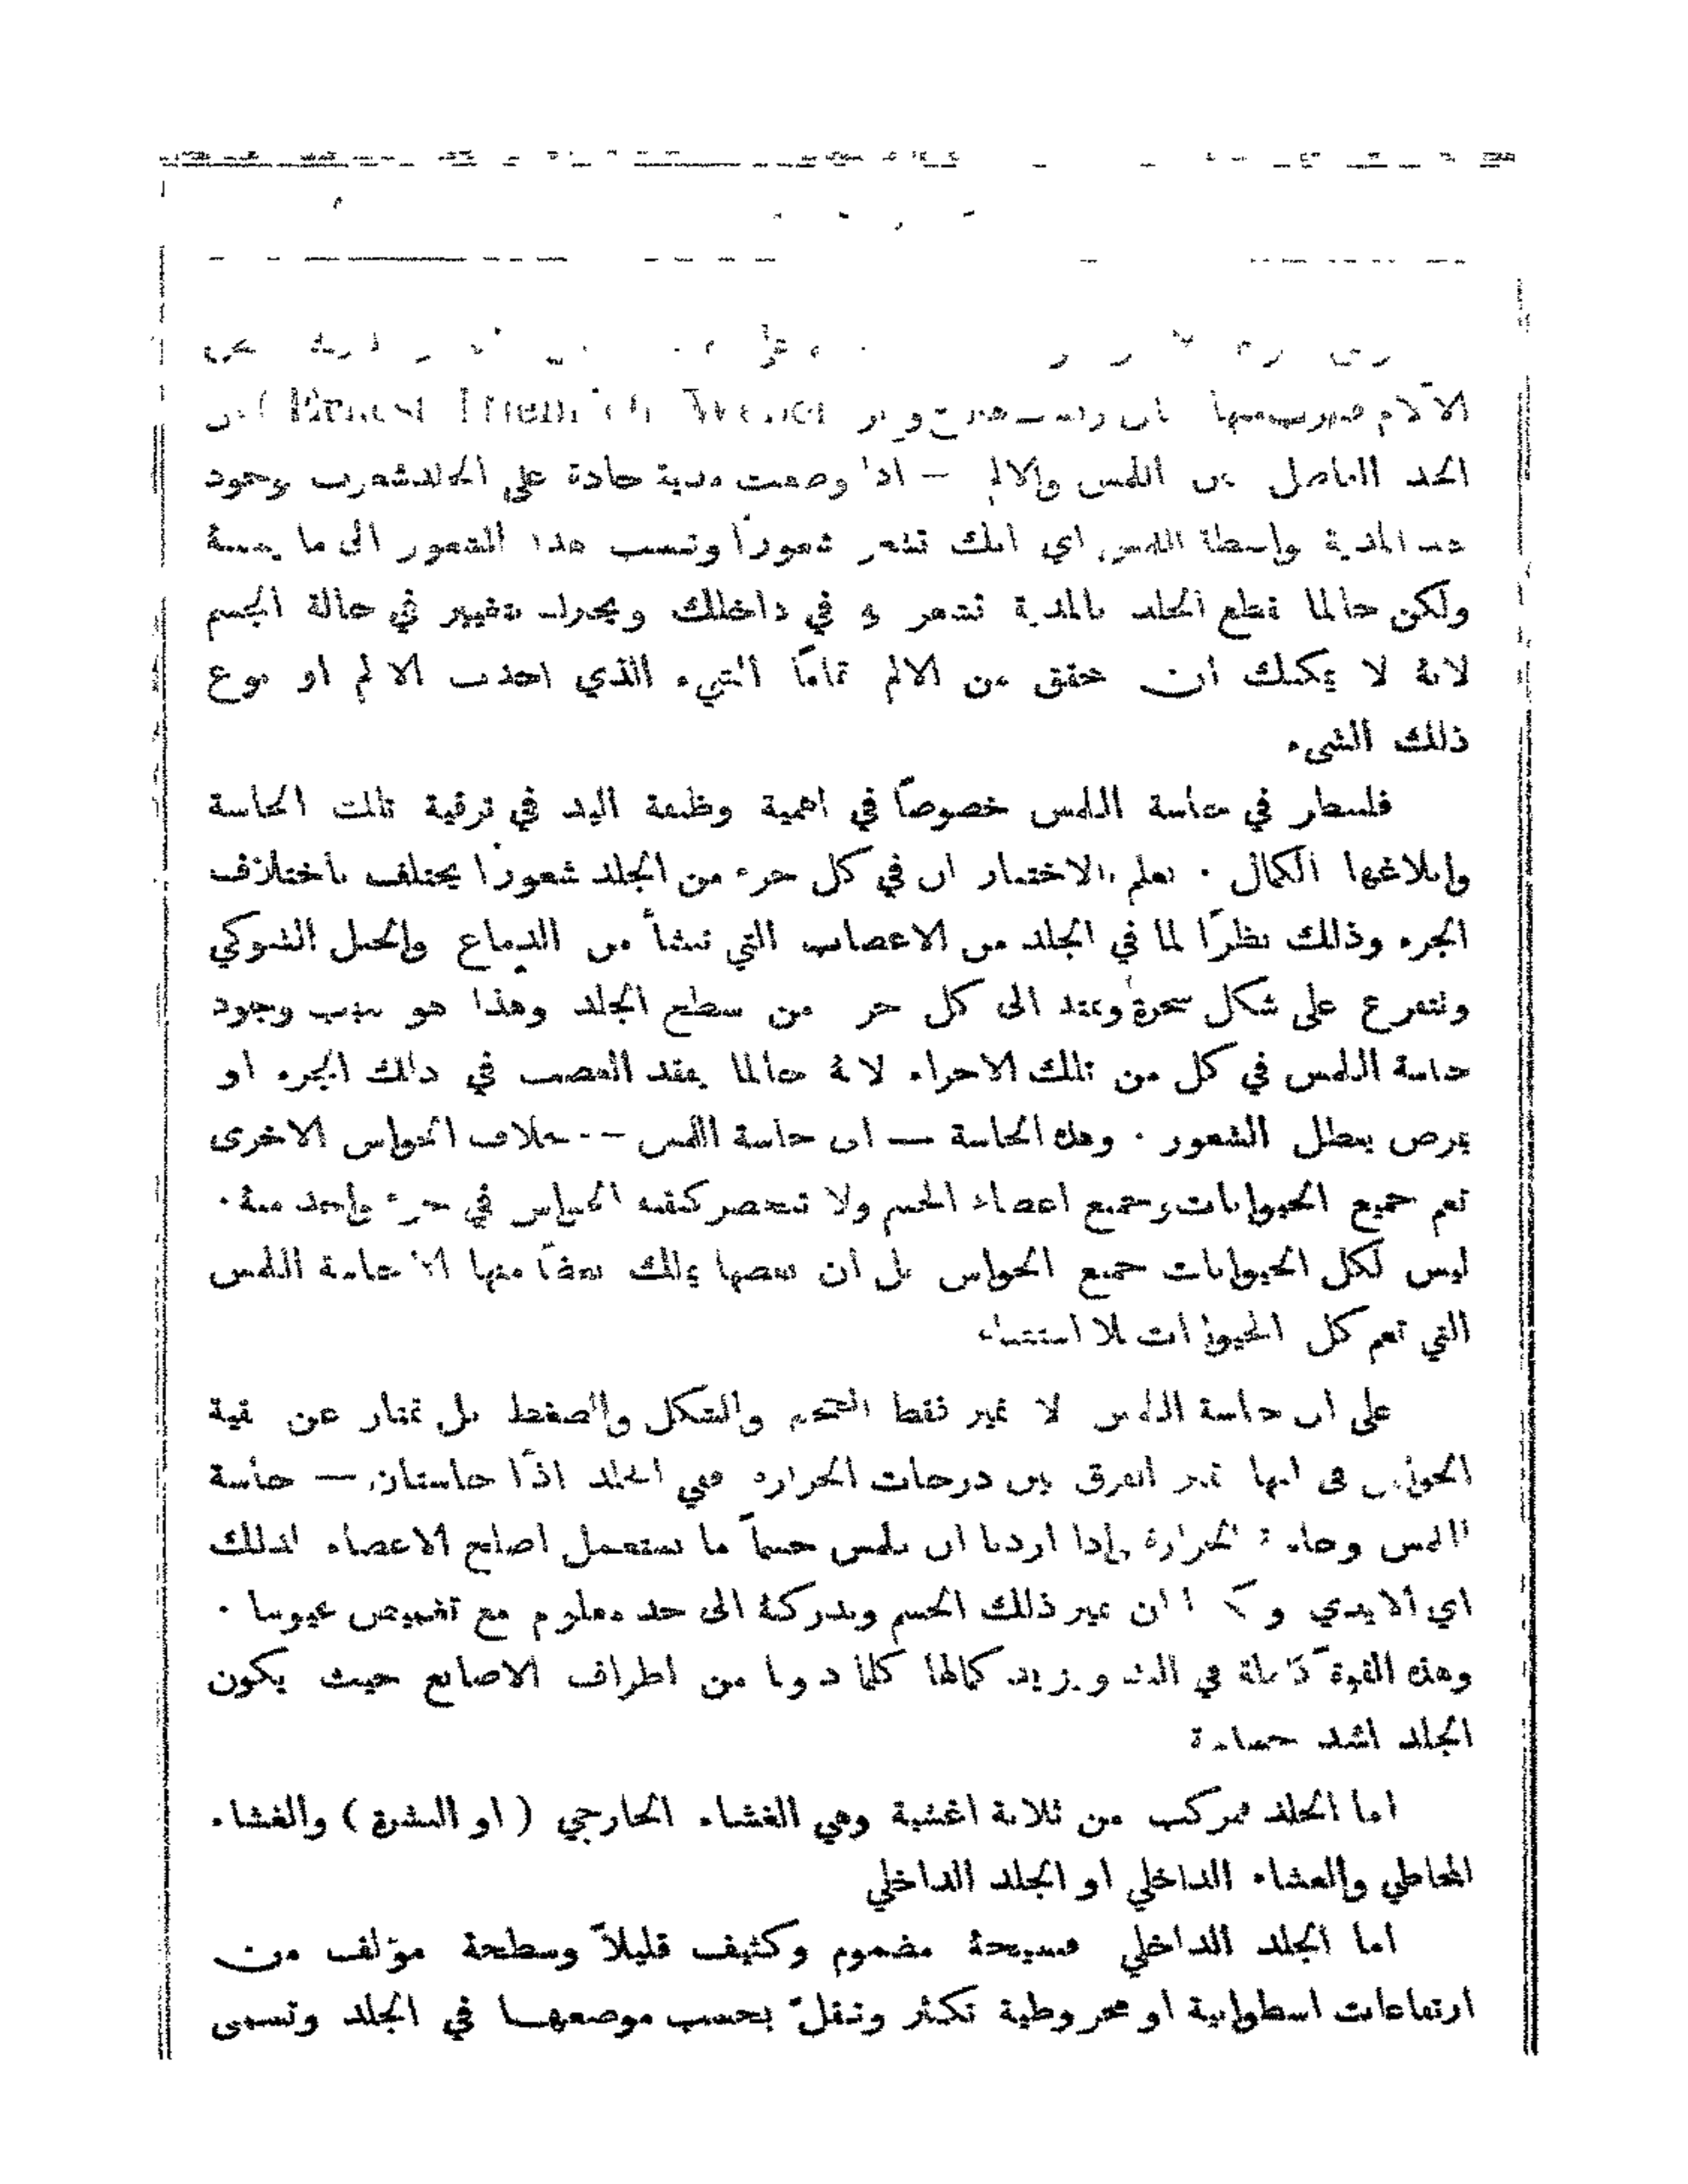 الحد الفاصل بين اللمس والالم — اذا وضعت مدية حادة على الجلد شعرت بوجود
المدية بواسطة اللمس اي انك تشعر شعورًا وتنسب هذا الشعور الى ما
ولكن حالما تقطع الجلد بالمدية تشعر في داخلك بتغيير في حالة الجسم
لانهُ لا يمكنك ان تحقق من الالم تمامًا الشيء الذي احدث الالم او نوع
ذلك الشيء
فلننظر في حاسة اللمس خصوصًا في اهمية وظيفة اليد في ترقية تلك الحاسة
وابلاغها الكمال . نعلم بالاختبار ان في كل جزء من الجلد شعورًا يختلف باختلاف
الجزء وذلك نظرًا لما في الجلد من الاعصاب التي تنشأ من الدماغ والحبل الشوكي
وتتفرع على شكل شجرة وتمتد الى كل جزء من سطح الجلد وهذا هو سبب وجود
حاسة اللمس في كل من تلك الاجزاء لانهُ حالما يفقد العصب في ذلك الجزء او
يمرض يبطل الشعور . وهذه الحاسة — اي حاسة اللمس — بخلاف الحواس الاخرى
تعم جميع الحيوانات وجميع اعضاء الجسم ولا تنحصر كبقية الحواس في جزء واحد منهُ .
ليس لكل الحيوانات جميع الحواس بل ان بعضها يملك بعضًا منها الا حاسة اللمس
التي تعم كل الحيوانات بلا استثناء
على ان حاسة اللمس لا تميز فقط الحجم والشكل والضغط بل تمتاز عن بقية
الحواس في انها تميز الفرق بين درجات الحرارة ففي الجلد اذًا حاستان — حاسة
اللمس وحاسة الحرارة فاذا اردنا ان نلمس جسمًا ما نستعمل اصلح الاعضاء لذلك
اي الايدي و ان نميز ذلك الجسم وندركهُ الى حد معلوم مع تغميض عيوننا .
وهذه القوة كاملة في اليد ويزيد كمالها كلما دنونا من اطراف الاصابع حيث يكون
الجلد اشد حساسة
اما الجلد فمركب من ثلاثة اغشية وهي الغشاء الخارجي ( او البشرة ) والغشاء
المخاطي والغشاء الداخلي او الجلد الداخلي
اما الجلد الداخلي فنسيجهُ مضموم وكثيف قليلاً وسطحهُ مؤلف من
ارتفاعات اسطوانية او مخروطية تكثر وتقلّ بحسب موضعها في الجلد وتسمى